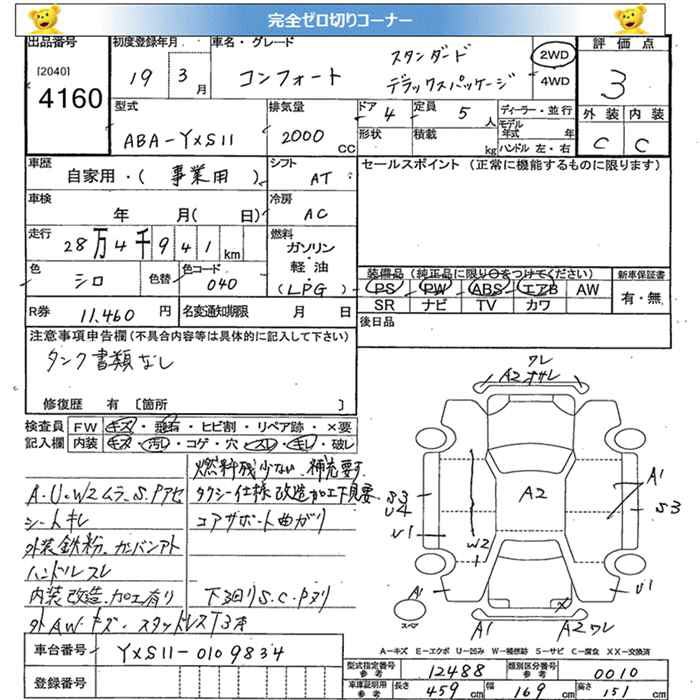 完全ゼロ切りコーナー
出品番号 初度登録年月 車名・グレード 評価点
[2040]
4160
19 3月 コンフォート スタンダード デラックスパッケージ 2WD 4WD 3
型式 排気量 ドア 4 定員 5人 ディーラー・並行 外装 内装
ABA-YXS11 2000 CC 形状 積載 kg モデル年式 年 ハンドル 左・右 C C
車歴 シフト セールスポイント (正常に機能するものに限ります)
自家用・(事業用) AT
車検 冷房
年 月( 日) AC
走行 燃料
28万4千941km ガソリン・軽油
色 色替 色コード (LPG) 装備品 (純正品に限り○をつけてください) 新車保証書
シロ 040 PS PW ABS エアB AW 有・無
R券 11,460円 名変通知期限 月 日 SR ナビ TV カワ
注意事項申告欄 (不具合内容等は具体的に記入して下さい) 後日品
タンク書類なし
修復歴 有 〔箇所 〕
検査員 FW キズ・飛石・ヒビ割・リペア跡・×要
記入欄 内装 キズ・汚レ・コゲ・穴・スレ・キレ・破レ
燃料残少ない、補充要す
A.U.W2ムラ、S.Pアセ タクシー仕様 改造加工下見要
シートキレ コアサポート曲がり
外装鉄粉、カンバンアト
ハンドルスレ
内装改造、加工有り 下回りS.C.Pヌリ
外AWキズ・スタッドレスT3本
ワレ
A2オサレ
A2
S3
U4
U1
W2
A1
S3
A1
U1
スペア
A1 A2ワレ
A-キズ E-エクボ U-凹み W-補修跡 S-サビ C-腐食 XX-交換済
車台番号 YXS11-0109834
登録番号
型式指定番号 参考 12488 類別区分番号 参考 0010
車庫証明用 参考 長さ 459cm 幅 169cm 高さ 151cm